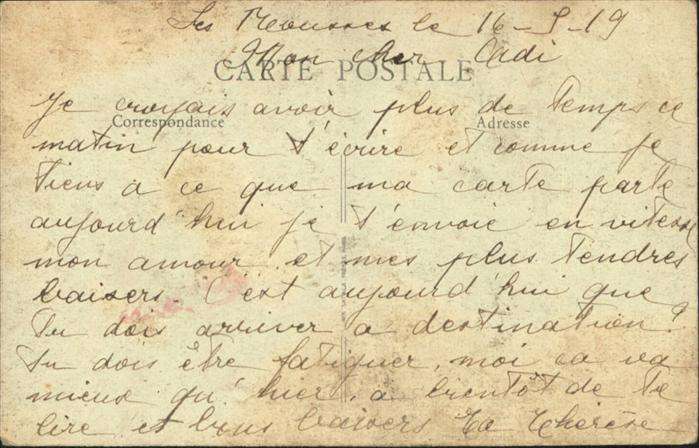 Les Rousses le 16-9-19
Mon cher Didi
CARTE POSTALE
Je croyais avoir plus de temps ce
Correspondance
Adresse
matin pour t'écrire et comme je
tiens à ce que ma carte parte
aujourd'hui je t'envoie en vitesse
mon amour et mes plus tendres
baisers. C'est aujourd'hui que
Tu dois arriver à destination?
Tu dois être fatiguer, moi ca va
mieux qu'hier, a bientôt de te
lire et bons baisers Ta Thérèse